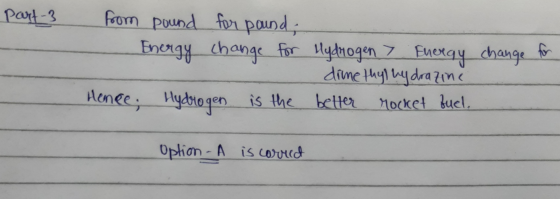 Part-3 From pound for pound;
Energy change for Hydrogen > Energy change for
dimethylhydrazine
Hence; Hydrogen is the better rocket fuel.
Option-A is correct